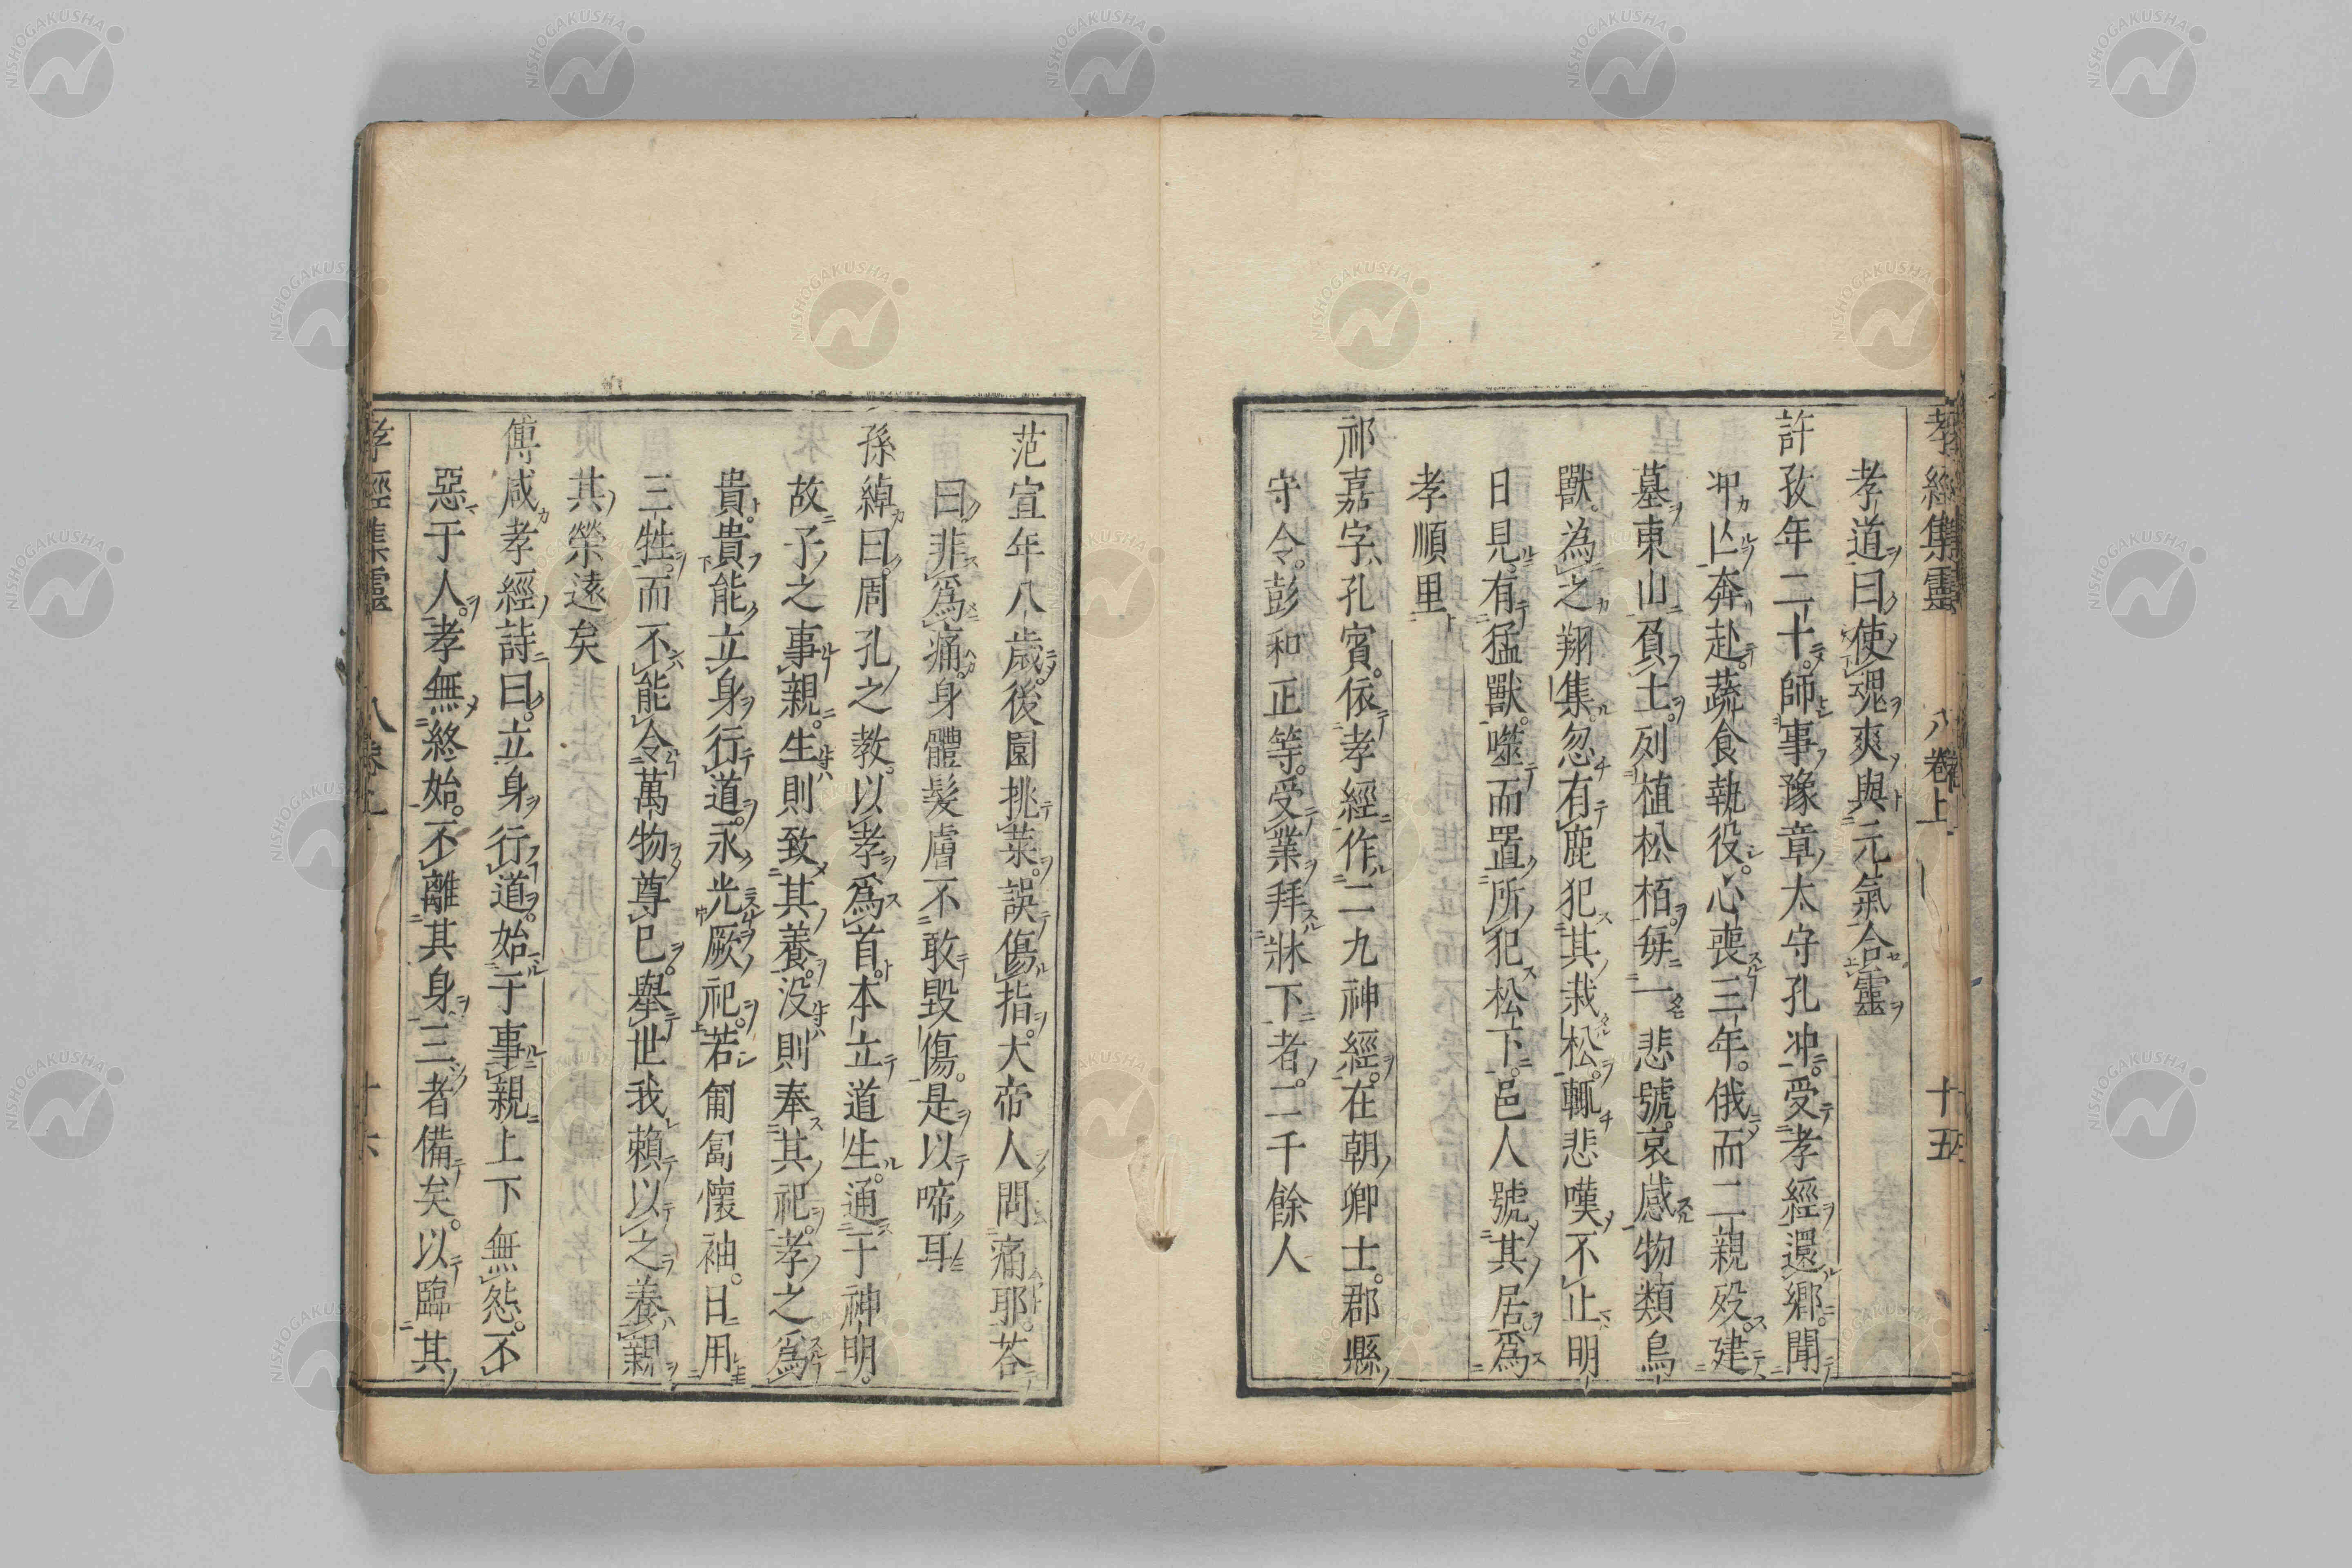 孝經集靈 卷上 十五
孝道曰使魂爽與元氣合靈
許孜年二十師事豫章太守孔冲受孝經還鄉聞
冲亾奔赴蔬食執役心喪三年俄而二親歿建
墓東山負土列植松栢每一悲號哀感物類鳥
獸為之翔集忽有鹿犯其栽松輒悲嘆不止明
日見有猛獸噬而置所犯松下邑人號其居爲
孝順里
祁嘉字孔賓依孝經作二九神經在朝卿士郡縣
守令彭和正等受業拜牀下者二千餘人
范宣年八歲後園挑菜誤傷指大帝人問痛耶荅
曰非爲痛身體髮膚不敢毀傷是以啼耳
孫綽曰周孔之教以孝爲首本立道生通于神明
故子之事親生則致其養沒則奉其祀孝之爲
貴貴能立身行道永光厥祀若匍匐懷袖日用
三牲而不能令萬物尊已舉世我賴以之養親
其榮遠矣
傅咸孝經詩曰立身行道始于事親上下無怨不
惡于人孝無終始不離其身三者備矣以臨其
孝經集靈 卷上 十六
NISHOGAKUSHA